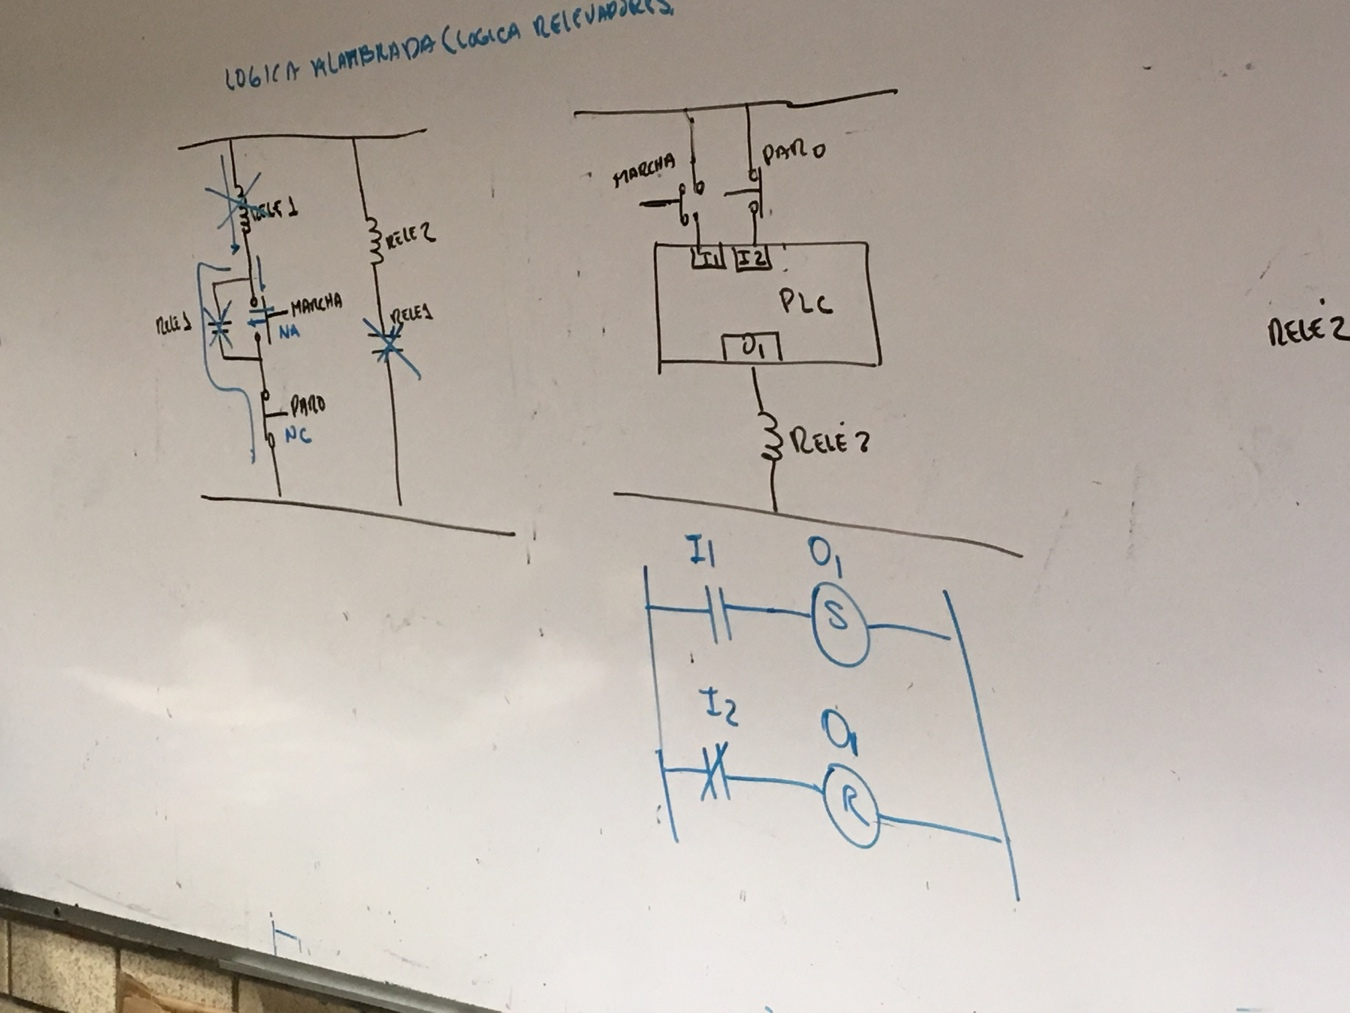 LOGICA ALAMBRADA (LOGICA RELEVADORES)
RELE 1
RELE 2
RELE 1
MARCHA
NA
RELE 1
PARO
NC
MARCHA
PARO
I1
I2
PLC
O1
RELÉ 2
RELÉ 2
I1
O1
S
I2
O1
R